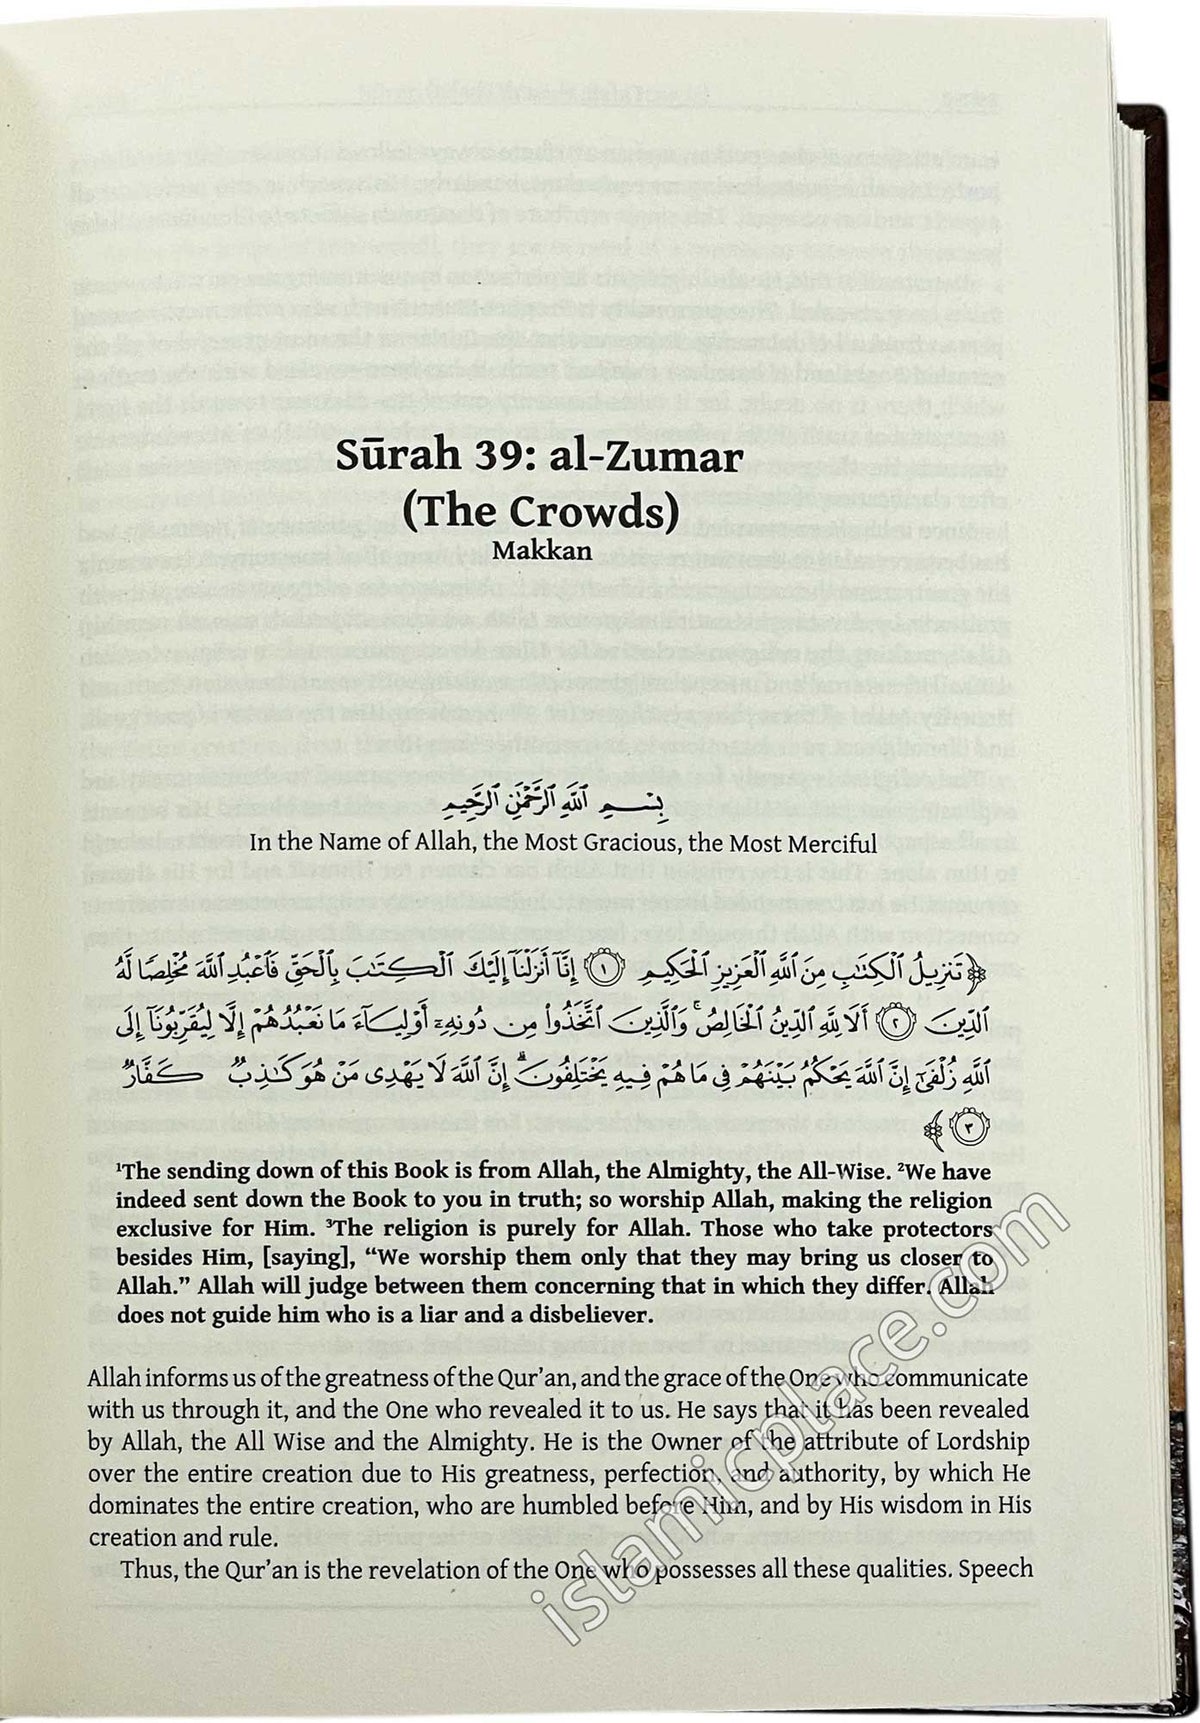 Sūrah 39: al-Zumar
(The Crowds)
Makkan
بِسْمِ ٱللَّهِ ٱلرَّحْمَٰنِ ٱلرَّحِيمِ
In the Name of Allah, the Most Gracious, the Most Merciful
﴿تَنزِيلُ ٱلْكِتَٰبِ مِنَ ٱللَّهِ ٱلْعَزِيزِ ٱلْحَكِيمِ ١ إِنَّآ أَنزَلْنَآ إِلَيْكَ ٱلْكِتَٰبَ بِٱلْحَقِّ فَٱعْبُدِ ٱللَّهَ مُخْلِصًا لَّهُ
ٱلدِّينَ ٢ أَلَا لِلَّهِ ٱلدِّينُ ٱلْخَالِصُ ۚ وَٱلَّذِينَ ٱتَّخَذُوا۟ مِن دُونِهِۦٓ أَوْلِيَآءَ مَا نَعْبُدُهُمْ إِلَّا لِيُقَرِّبُونَآ إِلَى
ٱللَّهِ زُلْفَىٰٓ إِنَّ ٱللَّهَ يَحْكُمُ بَيْنَهُمْ فِى مَا هُمْ فِيهِ يَخْتَلِفُونَ ۗ إِنَّ ٱللَّهَ لَا يَهْدِى مَنْ هُوَ كَٰذِبٌ كَفَّارٌ
٣﴾
¹The sending down of this Book is from Allah, the Almighty, the All-Wise. ²We have
indeed sent down the Book to you in truth; so worship Allah, making the religion
exclusive for Him. ³The religion is purely for Allah. Those who take protectors
besides Him, [saying], “We worship them only that they may bring us closer to
Allah.” Allah will judge between them concerning that in which they differ. Allah
does not guide him who is a liar and a disbeliever.
Allah informs us of the greatness of the Qur’an, and the grace of the One who communicate
with us through it, and the One who revealed it to us. He says that it has been revealed
by Allah, the All Wise and the Almighty. He is the Owner of the attribute of Lordship
over the entire creation due to His greatness, perfection, and authority, by which He
dominates the entire creation, who are humbled before Him, and by His wisdom in His
creation and rule.
Thus, the Qur’an is the revelation of the One who possesses all these qualities. Speech
islamicplace.com